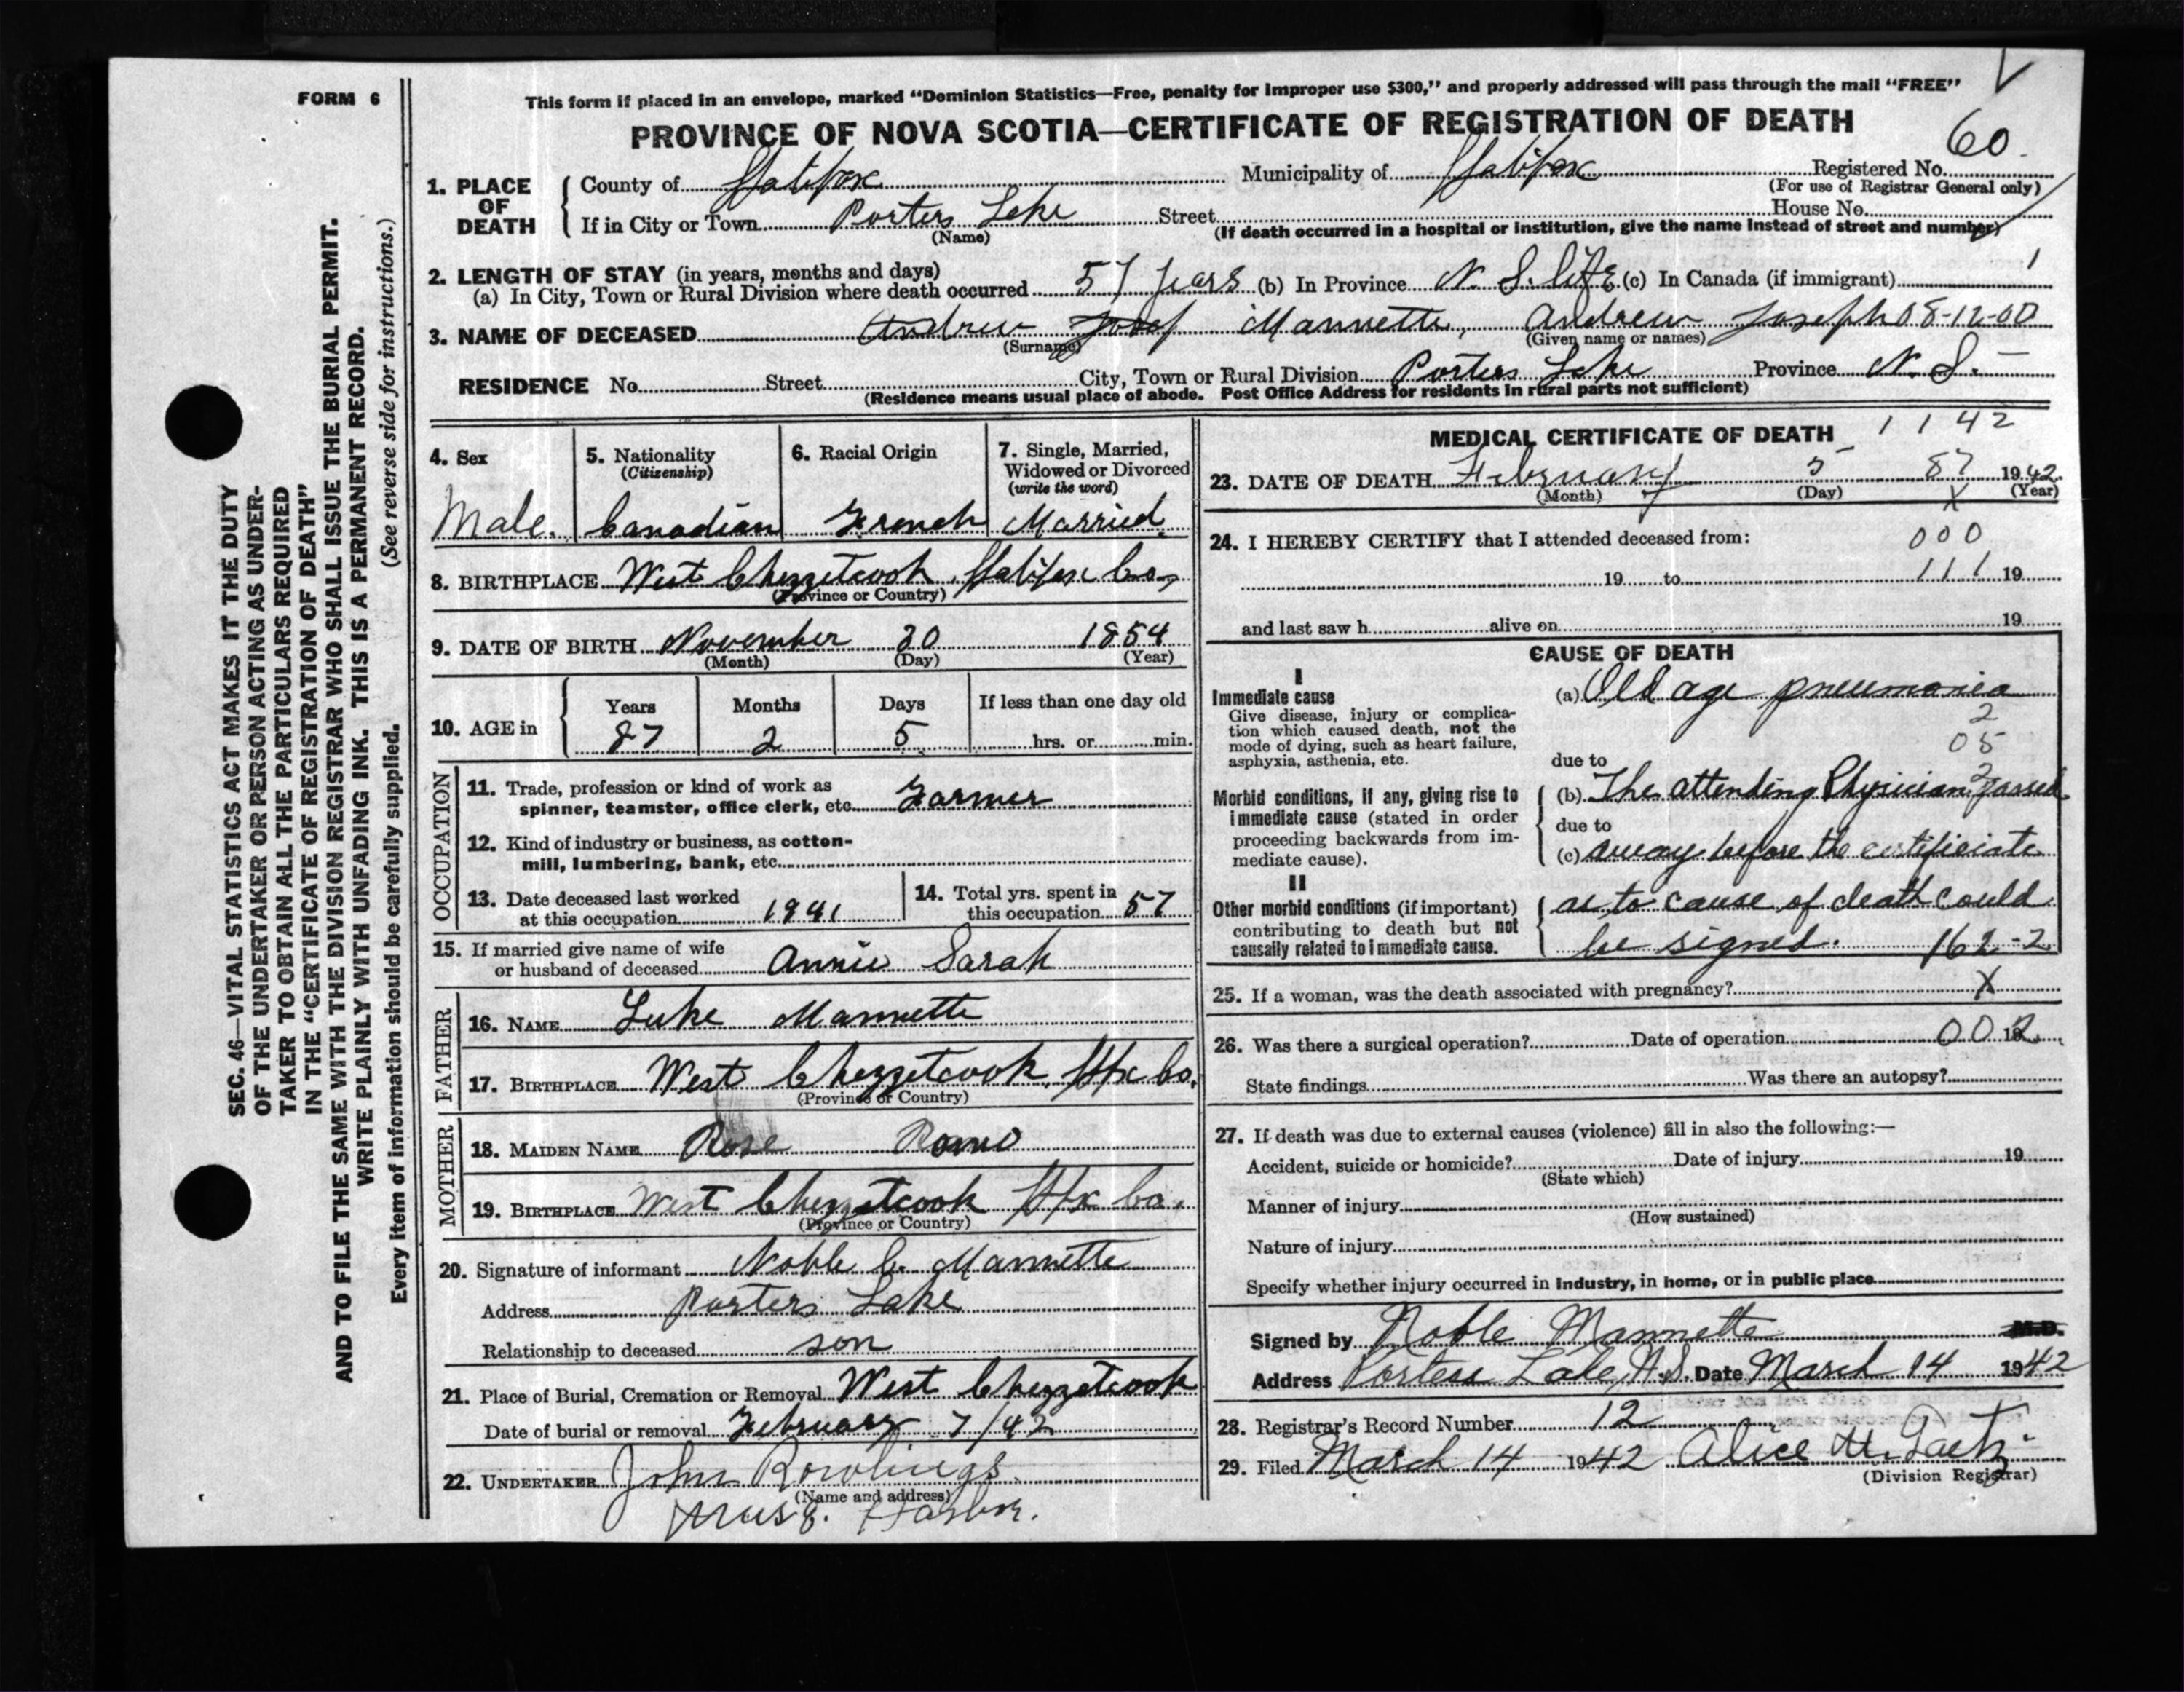 FORM 6
This form if placed in an envelope, marked "Dominion Statistics—Free, penalty for improper use $300," and properly addressed will pass through the mail "FREE"
PROVINCE OF NOVA SCOTIA—CERTIFICATE OF REGISTRATION OF DEATH
60
1. PLACE OF DEATH
County of Halifax Municipality of Halifax Registered No.
(For use of Registrar General only)
If in City or Town Porters Lake Street House No.
(Name) (If death occurred in a hospital or institution, give the name instead of street and number)
2. LENGTH OF STAY (in years, months and days)
(a) In City, Town or Rural Division where death occurred 57 years (b) In Province N. S. life (c) In Canada (if immigrant) 1
3. NAME OF DECEASED Andrew Josef Mannette, Andrew Joseph 08-12-00
(Surname) (Given name or names)
RESIDENCE No. Street City, Town or Rural Division Porters Lake Province N. S.
(Residence means usual place of abode. Post Office Address for residents in rural parts not sufficient)
4. Sex
Male.
5. Nationality
(Citizenship)
Canadian
6. Racial Origin
French
7. Single, Married,
Widowed or Divorced
(write the word)
Married
8. BIRTHPLACE West Chezzetcook Halifax Co,
(Province or Country)
9. DATE OF BIRTH November 30 1854
(Month) (Day) (Year)
10. AGE in
Years Months Days If less than one day old
87 2 5 hrs. or min.
OCCUPATION
11. Trade, profession or kind of work as
spinner, teamster, office clerk, etc. Farmer
12. Kind of industry or business, as cotton-
mill, lumbering, bank, etc.
13. Date deceased last worked
at this occupation 1941
14. Total yrs. spent in
this occupation 57
15. If married give name of wife
or husband of deceased Annie Sarah
FATHER
16. NAME Luke Mannette
17. BIRTHPLACE West Chezzetcook, Hfx Co.
(Province or Country)
MOTHER
18. MAIDEN NAME Rose
19. BIRTHPLACE West Chezzetcook Hfx Co.
(Province or Country)
20. Signature of informant Noble C. Mannette
Address Porters Lake
Relationship to deceased son
21. Place of Burial, Cremation or Removal West Chezzetcook
Date of burial or removal February 7/42
22. UNDERTAKER John Rowlings
(Name and address)
Musq. Harbor.
MEDICAL CERTIFICATE OF DEATH 1 1 42
23. DATE OF DEATH February 5 87 1942
(Month) (Day) (Year)
X
24. I HEREBY CERTIFY that I attended deceased from: 000
19 to 111 19
and last saw h alive on 19
CAUSE OF DEATH
I
Immediate cause
Give disease, injury or complica-
tion which caused death, not the
mode of dying, such as heart failure,
asphyxia, asthenia, etc.
(a) Old age pneumonia
2
05
2
due to
Morbid conditions, if any, giving rise to
immediate cause (stated in order
proceeding backwards from im-
mediate cause).
(b) The attending Physician passed
due to
(c) away before the certificiate
II
Other morbid conditions (if important)
contributing to death but not
causally related to immediate cause.
as to cause of death could
be signed. 162-2
25. If a woman, was the death associated with pregnancy? X
26. Was there a surgical operation? Date of operation 002 19
State findings Was there an autopsy?
27. If death was due to external causes (violence) fill in also the following:—
Accident, suicide or homicide? Date of injury 19
(State which)
Manner of injury
(How sustained)
Nature of injury
Specify whether injury occurred in industry, in home, or in public place
Signed by Noble Mannette M.D.
Address Porters Lake, N.S. Date March 14 1942
28. Registrar's Record Number 12
29. Filed March 14 1942 Alice M.
(Division Registrar)
SEC. 46—VITAL STATISTICS ACT MAKES IT THE DUTY
OF THE UNDERTAKER OR PERSON ACTING AS UNDER-
TAKER TO OBTAIN ALL THE PARTICULARS REQUIRED
IN THE "CERTIFICATE OF REGISTRATION OF DEATH"
AND TO FILE THE SAME WITH THE DIVISION REGISTRAR WHO SHALL ISSUE THE BURIAL PERMIT.
WRITE PLAINLY WITH UNFADING INK. THIS IS A PERMANENT RECORD.
Every item of information should be carefully supplied. (See reverse side for instructions.)